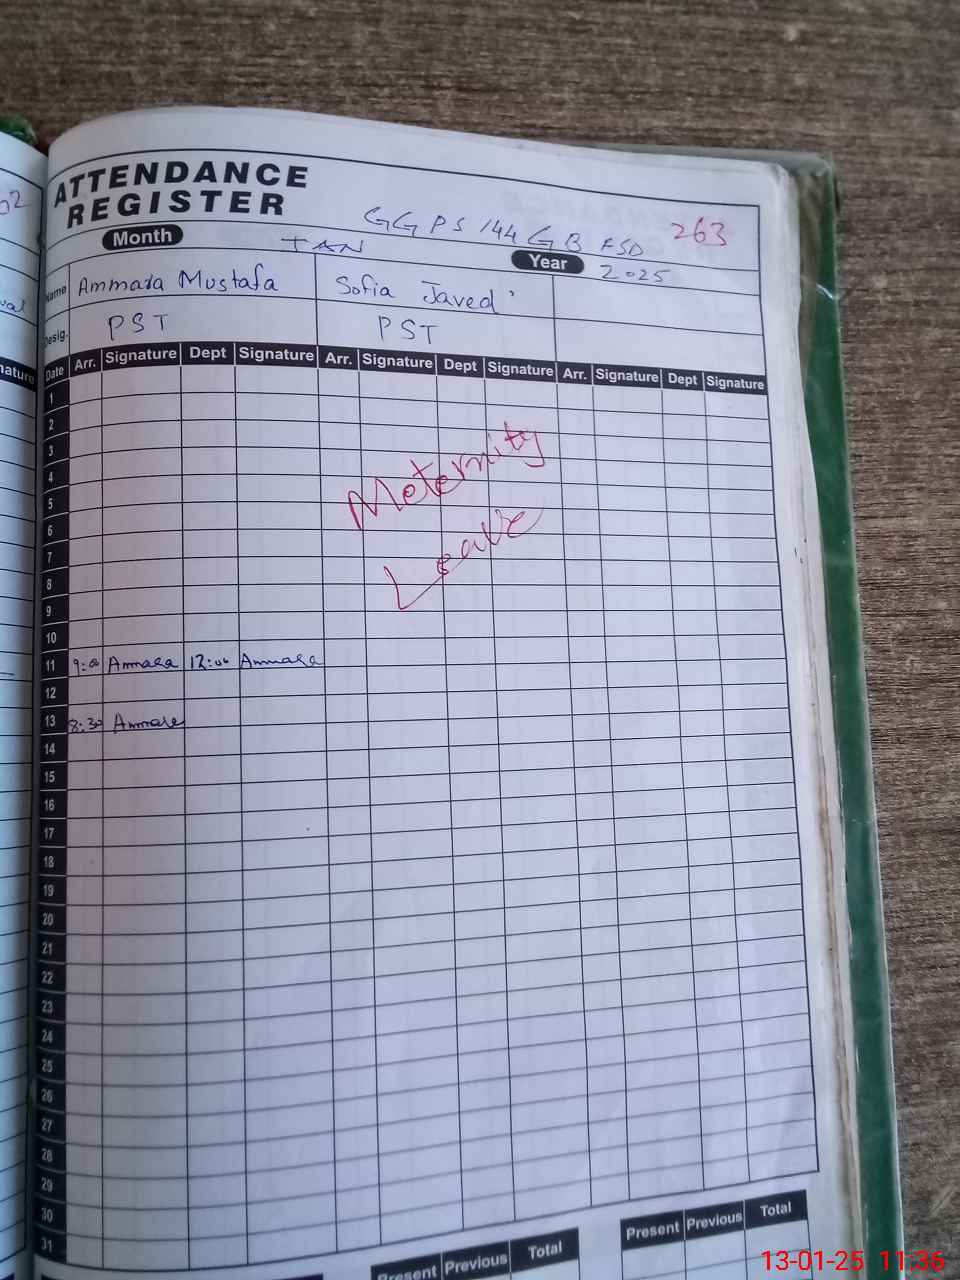 02
ual
nature
ATTENDANCE
REGISTER
GGPS 144 GB FSD 263
Month JAN Year 2025
Name Ammara Mustafa Sofia Javed
Desig. PST PST
Date Arr. Signature Dept Signature Arr. Signature Dept Signature Arr. Signature Dept Signature
1
2
3
4
5
6
7
8
9
10
Meternity
Leave
11 9:00 Ammara 12:00 Ammara
12
13 8:30 Ammara
14
15
16
17
18
19
20
21
22
23
24
25
26
27
28
29
30
31
Present Previous Total Present Previous Total
13-01-25 11:36